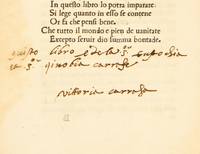 In questo libro lo potra imparare:
Si lege quanto in esso se contene
Or fa che pensi bene.
Che tutto il mondo e pien de vanitate
Excepto seruir dio summa bontade.
questo libro è de la S.ra
S.ra ginobia carrafa
vittoria carrafa